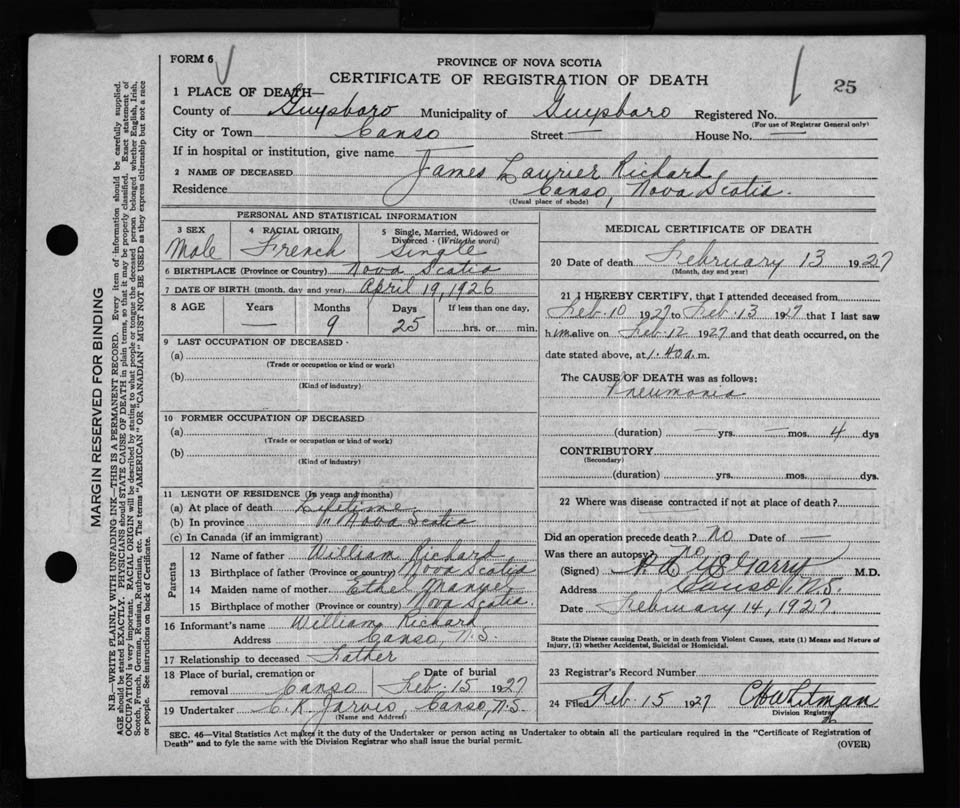 FORM 6
PROVINCE OF NOVA SCOTIA
CERTIFICATE OF REGISTRATION OF DEATH
25
1 PLACE OF DEATH—
County of Guysboro Municipality of Guysboro Registered No.
(For use of Registrar General only)
City or Town Canso Street — House No. —
If in hospital or institution, give name —
2 NAME OF DECEASED James Laurier Richard
Residence Canso, Nova Scotia.
(Usual place of abode)
PERSONAL AND STATISTICAL INFORMATION
3 SEX Male
4 RACIAL ORIGIN French
5 Single, Married, Widowed or Divorced (Write the word) Single
6 BIRTHPLACE (Province or Country) Nova Scotia
7 DATE OF BIRTH (month, day and year) April 19, 1926
8 AGE Years Months Days If less than one day,
— 9 25 hrs. or min.
9 LAST OCCUPATION OF DECEASED
(a)
(Trade or occupation or kind or work)
(b)
(Kind of industry)
10 FORMER OCCUPATION OF DECEASED
(a)
(Trade or occupation or kind of work)
(b)
(Kind of industry)
11 LENGTH OF RESIDENCE (In years and months)
(a) At place of death Lifetime
(b) In province " Nova Scotia
(c) In Canada (if an immigrant)
Parents
12 Name of father William Richard
13 Birthplace of father (Province or country) Nova Scotia
14 Maiden name of mother Ethel
15 Birthplace of mother (Province or country) Nova Scotia.
16 Informant's name William Richard
Address Canso, N.S.
17 Relationship to deceased Father
18 Place of burial, cremation or removal Canso Date of burial Feb. 15 1927
19 Undertaker C. R. Jarvis, Canso, N.S.
(Name and Address)
MEDICAL CERTIFICATE OF DEATH
20 Date of death February 13 1927
(Month, day and year)
21 I HEREBY CERTIFY, that I attended deceased from
Feb 10 1927 to Feb. 13 1927 that I last saw
him alive on Feb 12 1927 and that death occurred, on the
date stated above, at 1.40 a. m.
The CAUSE OF DEATH was as follows:
Pneumonia
(duration) — yrs. — mos. 4 dys
CONTRIBUTORY
(Secondary)
(duration) yrs. mos. dys
22 Where was disease contracted if not at place of death? —
Did an operation precede death? no Date of —
Was there an autopsy? no
(Signed) M.D.
Address Canso N.S.
Date February 14, 1927
State the Disease causing Death, or in death from Violent Causes, state (1) Means and Nature of
Injury, (2) whether Accidental, Suicidal or Homicidal.
23 Registrar's Record Number
24 Filed Feb 15 1927 C H Whitman
Division Registrar
SEC. 46—Vital Statistics Act makes it the duty of the Undertaker or person acting as Undertaker to obtain all the particulars required in the "Certificate of Registration of
Death" and to fyle the same with the Division Registrar who shall issue the burial permit.
(OVER)
MARGIN RESERVED FOR BINDING
N.B.—WRITE PLAINLY WITH UNFADING INK—THIS IS A PERMANENT RECORD. Every item of information should be carefully supplied.
AGE should be stated EXACTLY. PHYSICIANS should STATE CAUSE OF DEATH in plain terms, so that it may be properly classified. Exact statement of
OCCUPATION is very important. RACIAL ORIGIN will be described by stating to what people or tongue the deceased person belonged whether English, Irish,
Scotch, French, German, Russian, Ruthenian, etc. The terms "AMERICAN" OR "CANADIAN" MUST NOT BE USED as they express citizenship but not a race
or people. See instructions on back of Certificate.